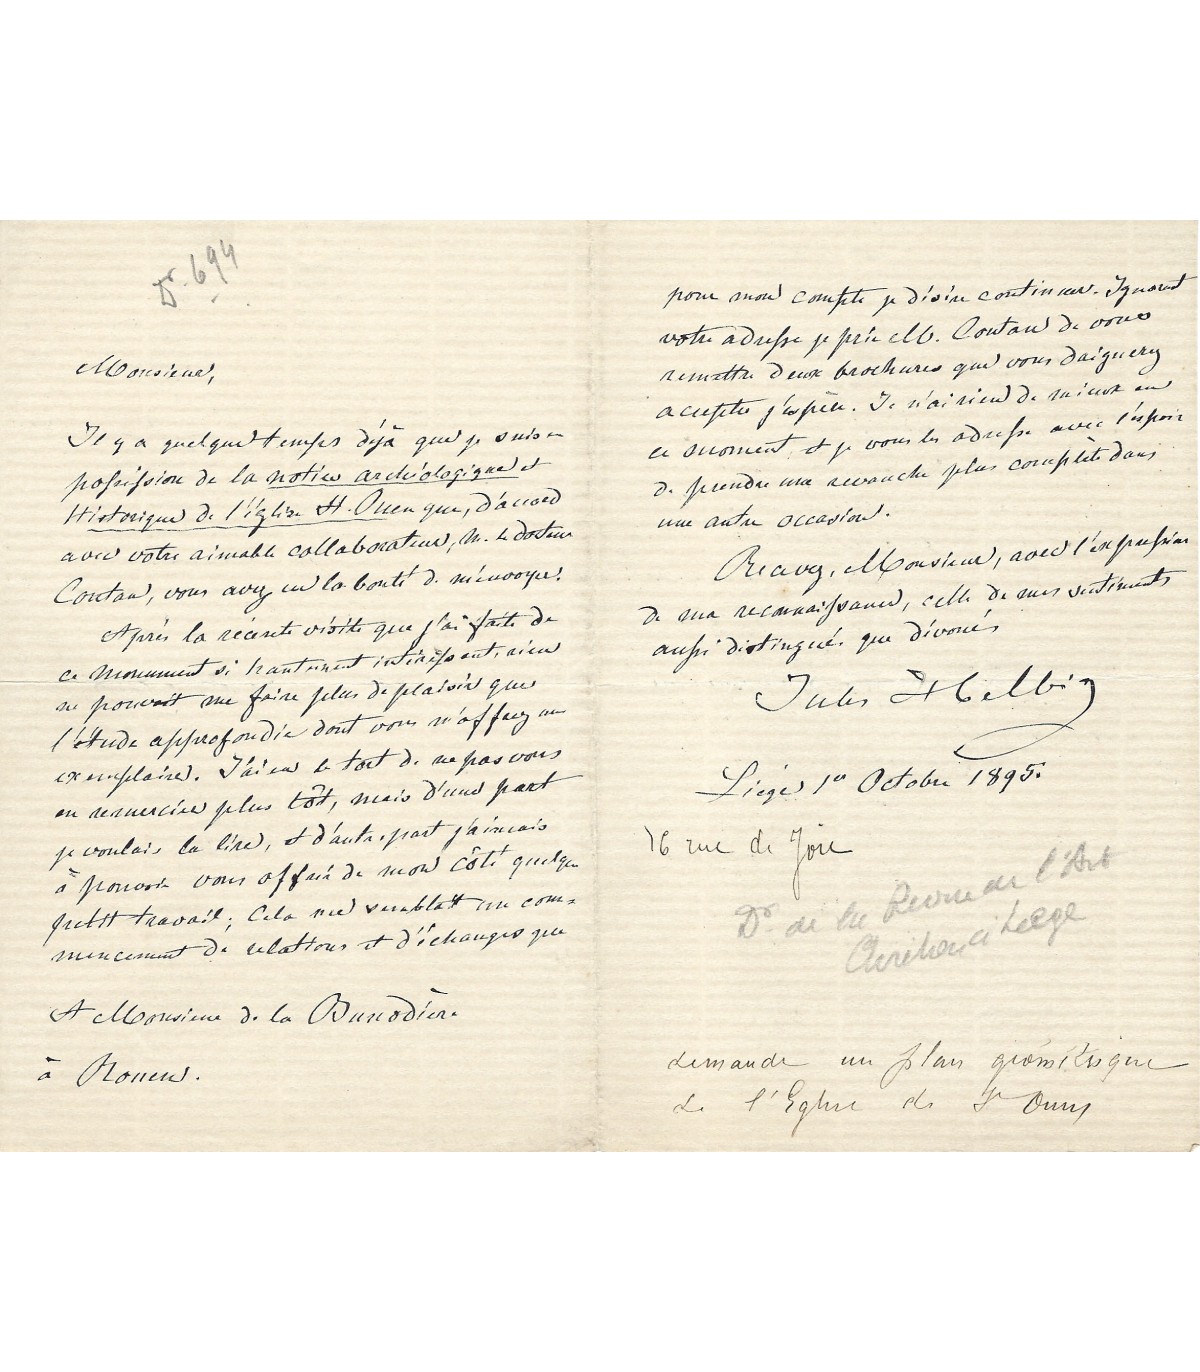 Dr. 694
Monsieur,
Il y a quelque temps déjà que je suis en
possession de la notice archéologique et
Historique de l'église St. Ouen que, d'accord
avec votre aimable collaborateur, M. le docteur
Coutan, vous avez eu la bonté de m'envoyer.
Après la récente visite que j'ai faite de
ce monument si hautement intéressant, rien
ne pouvait me faire plus de plaisir que
l'étude approfondie dont vous m'offrez un
exemplaire. J'ai eu le tort de ne pas vous
en remercier plus tôt, mais d'une part
je voulais la lire, et d'autre part j'aimais
à pouvoir vous offrir de mon côté quelque
petit travail; Cela me semblait un com-
mencement de relations et d'échanges que
A Monsieur de la Bunodière
à Rouen.
pour mon compte je désire continuer. Ignorant
votre adresse je prie M. Coutan de vous
remettre deux brochures que vous daignerez
accepter j'espère. Je n'ai rien de mieux en
ce moment, et je vous les adresse avec l'espoir
de prendre ma revanche plus complète dans
une autre occasion.
Recevez, Monsieur, avec l'expression
de ma reconnaissance, celle de mes sentiments
aussi distingués que dévoués
Jules Helbig
Liège 1er Octobre 1895.
16 rue de Joie
Dr. de la Revue de l'Art
Chrétien à Liège
demande un plan géométrique
de l'Eglise de St Ouen